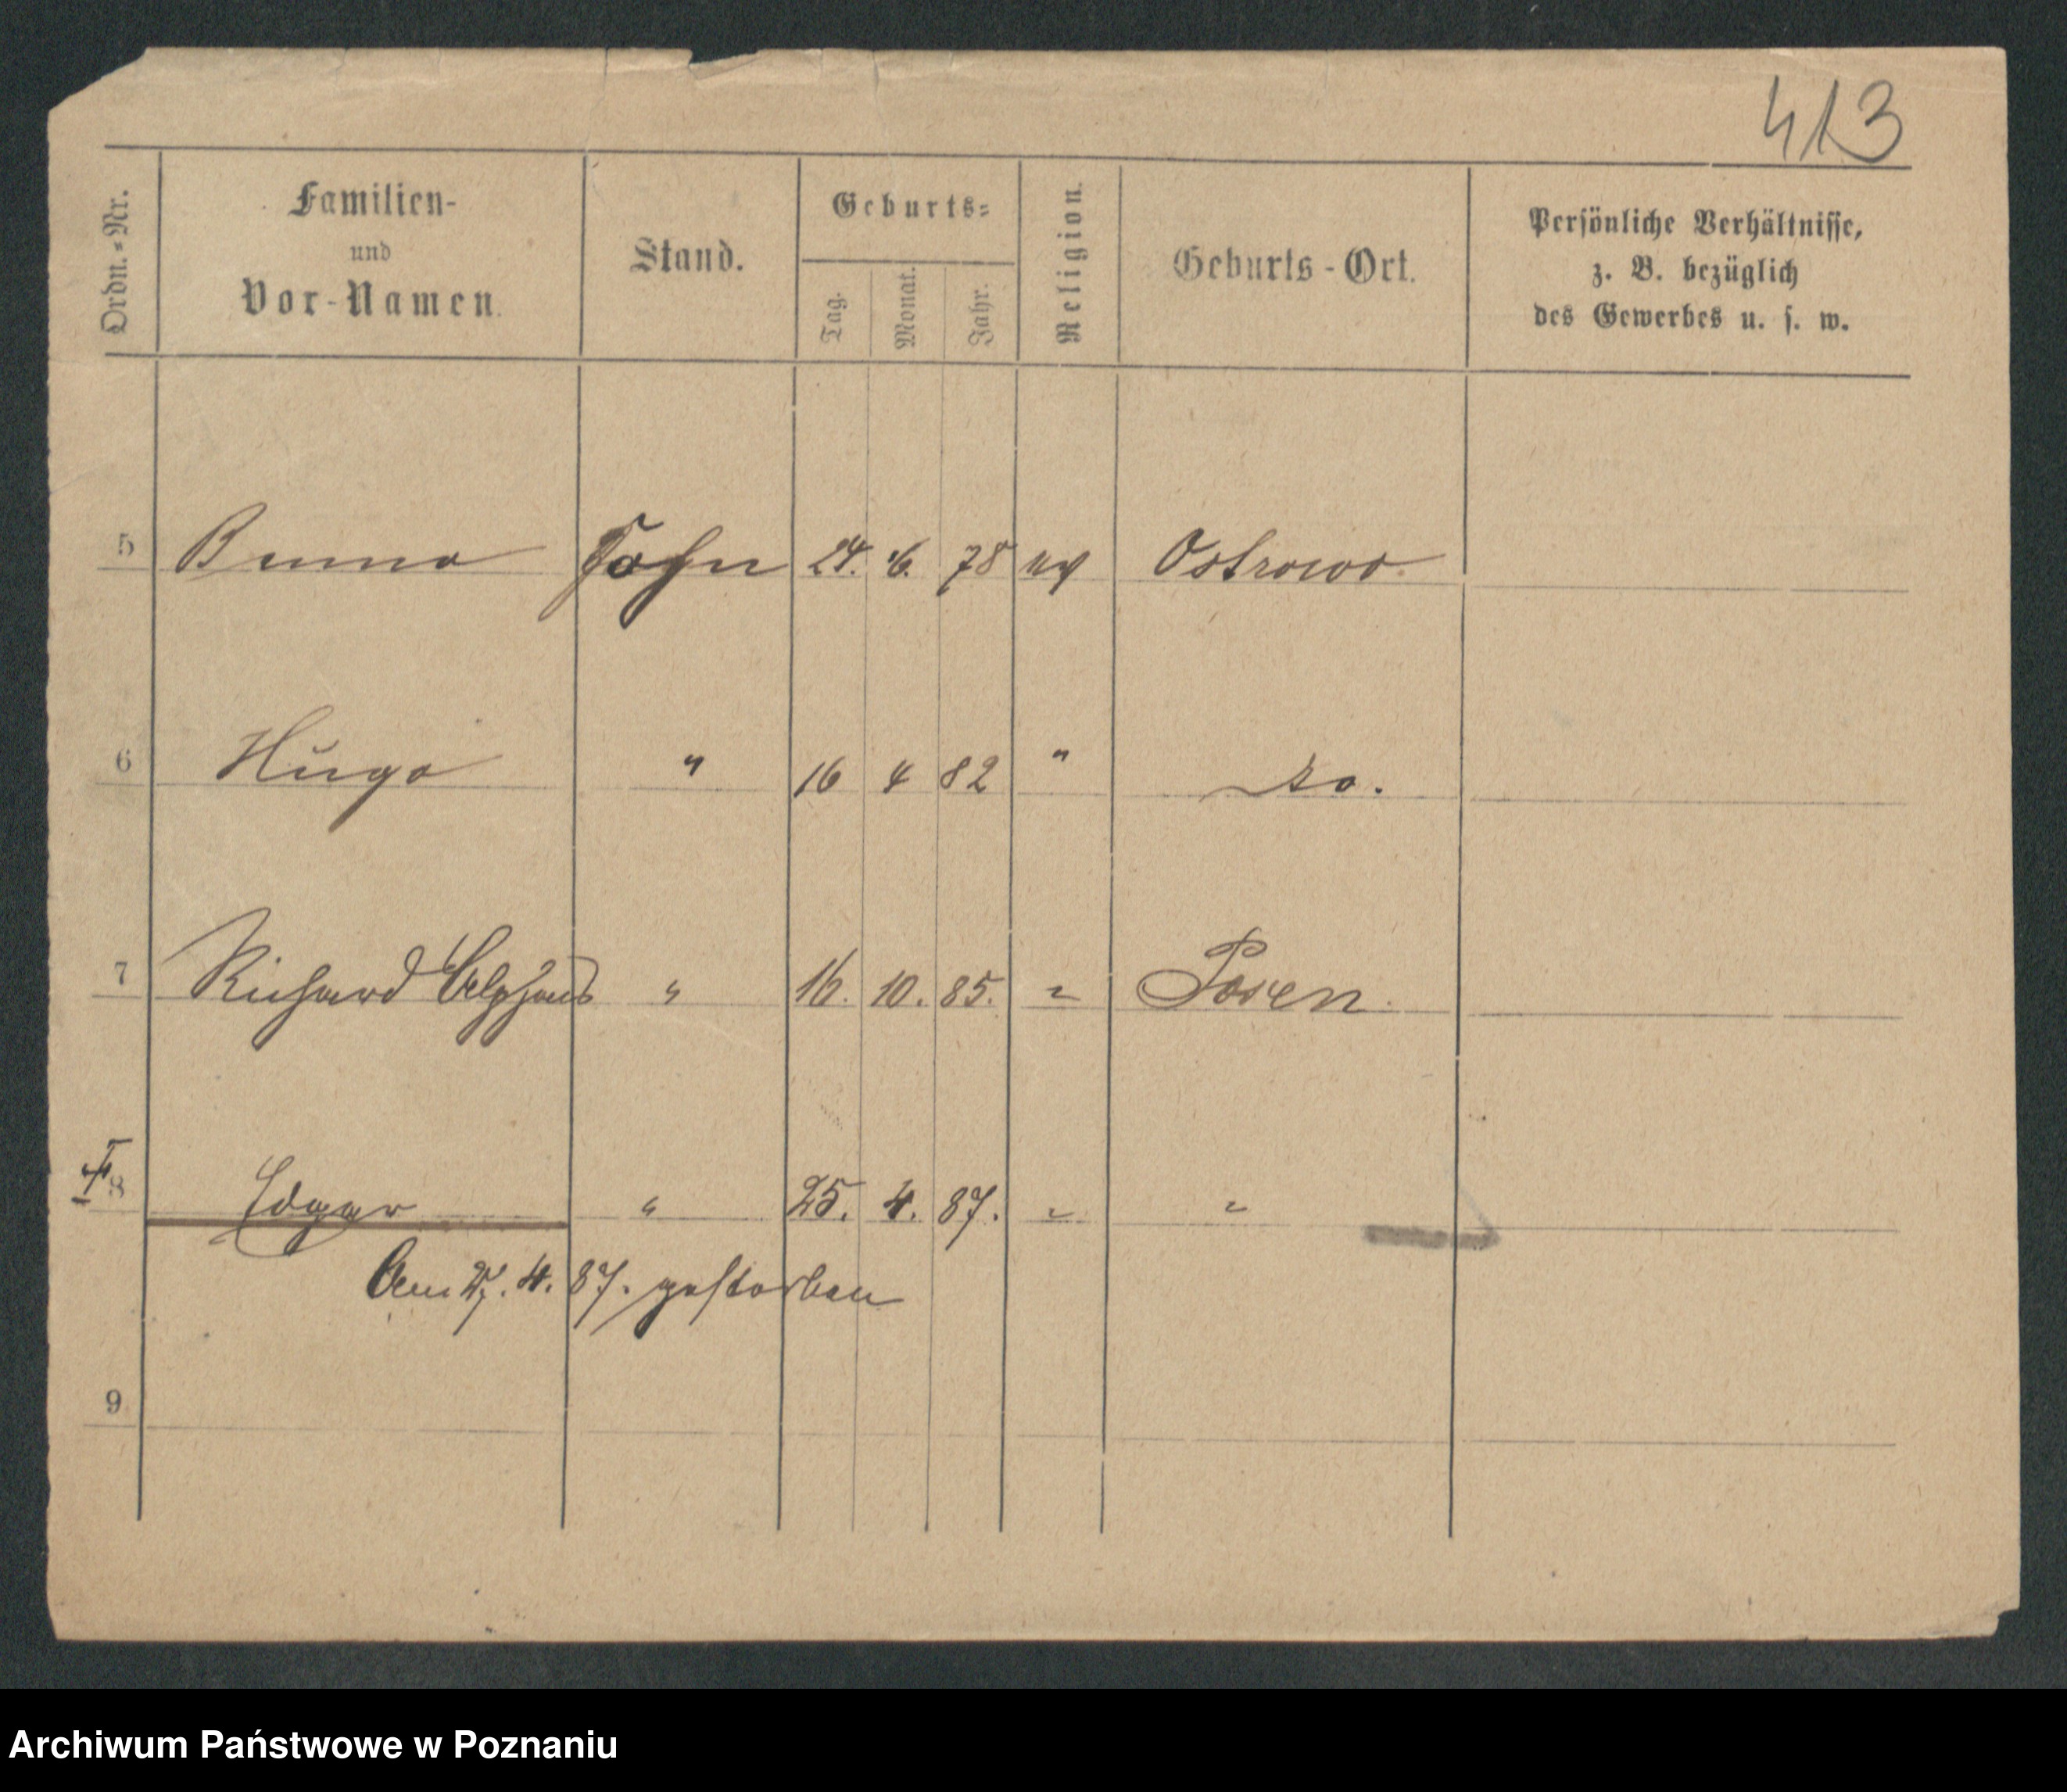 413
Ordn.-Nr.
Familien-
und
Vor-Namen.
Stand.
Geburts-
Tag.
Monat.
Jahr.
Religion.
Geburts-Ort.
Persönliche Verhältnisse,
z. B. bezüglich
des Gewerbes u. s. w.
5 Bruno Sohn 24. 6. 78 ev Ostrowo.
6 Hugo " 16 4 82 " do.
7 Richard Alphons " 16. 10. 85. " Posen.
8 Edgar " 25. 4. 87. " "
Am 27. 4. 87. gestorben
9
Archiwum Państwowe w Poznaniu